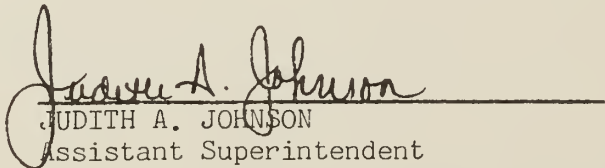 Judith A. Johnson
JUDITH A. JOHNSON
Assistant Superintendent